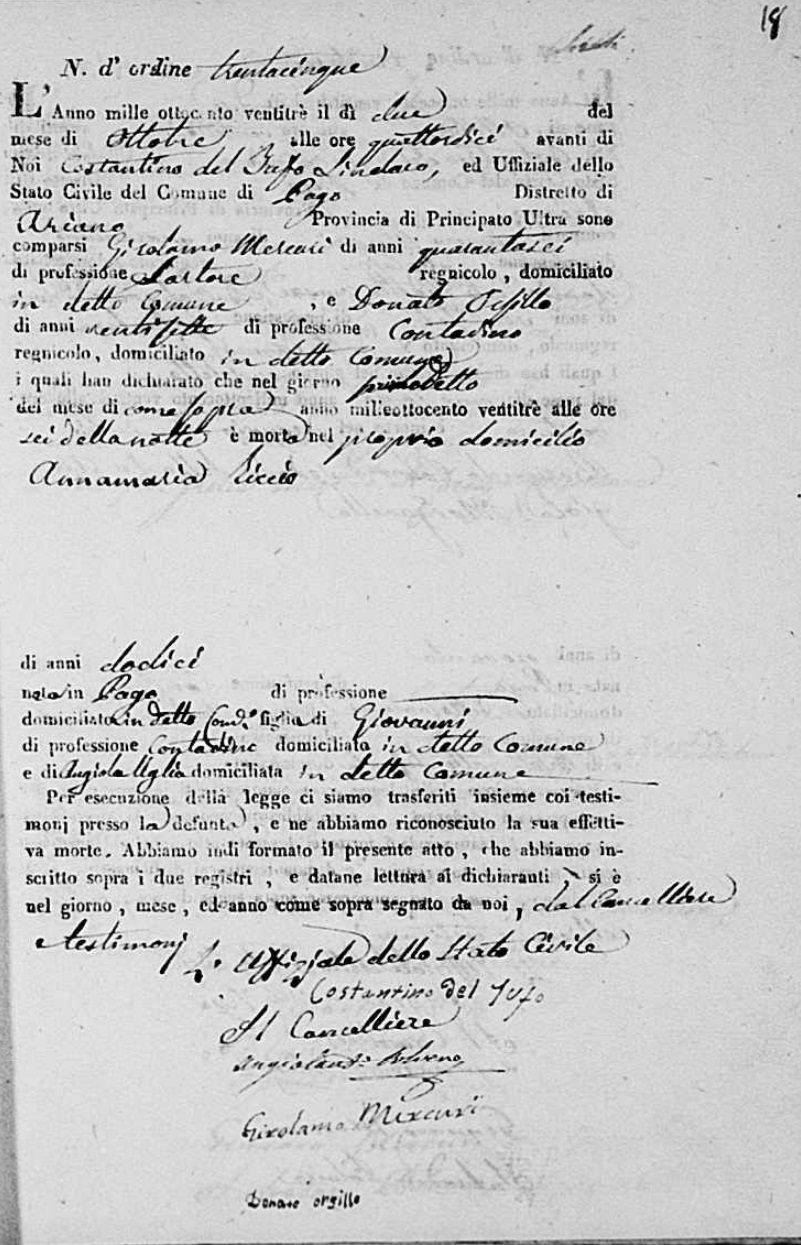 18
N. d' ordine trentacinque
L' Anno mille ottocento ventitrè il dì due del
mese di Ottobre alle ore quattordici avanti di
Noi Costantino del Jufo Sindaco, ed Uffiziale dello
Stato Civile del Comune di Pago Distretto di
Ariano Provincia di Principato Ultra sono
comparsi Girolamo Mercuri di anni quarantasei
di professione Sartore regnicolo, domiciliato
in detto Comune, e Donato Orsillo
di anni ventisette di professione Contadino
regnicolo, domiciliato in detto Comune
i quali han dichiarato che nel giorno primo detto
del mese di come sopra anno milleottocento ventitrè alle ore
sei della notte è morta nel proprio domicilio
Annamaria Riccio
di anni dodici
nata in Pago di professione
domiciliata in detto figlia di Giovanni
di professione Contadino domiciliato in detto Comune
e di Angiola Uglia domiciliata in detto Comune
Per esecuzione della legge ci siamo trasferiti insieme coi testi-
monj presso la defunta, e ne abbiamo riconosciuto la sua effetti-
va morte. Abbiamo indi formato il presente atto, che abbiamo in-
scritto sopra i due registri, e datane lettura ai dichiaranti si è
nel giorno, mese, ed anno come sopra segnato da noi, dal Cancelliere
e testimonj
L' Uffiziale dello Stato Civile
Costantino del Jufo
Il Cancelliere
Girolamo Mercuri
Donato orsillo